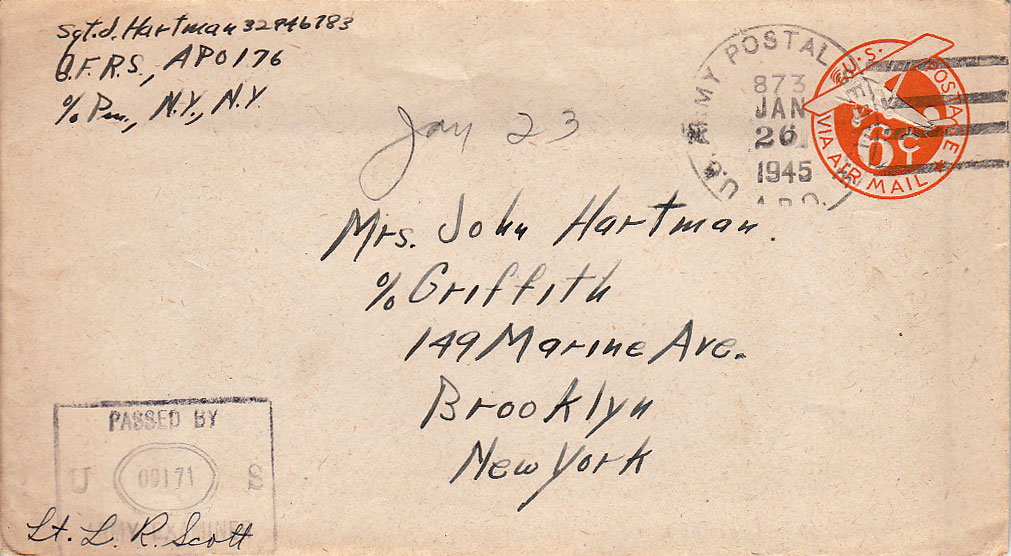 Sgt. J. Hartman 32946783
O.F.R.S., APO 176
% Pm, N.Y., N.Y.
Jan 23
U.S. ARMY POSTAL SERVICE
873
JAN
26
1945
A.P.O.
U.S. POSTAGE
6¢
VIA AIR MAIL
Mrs. John Hartman.
% Griffith
149 Marine Ave.
Brooklyn
New York
PASSED BY
U 09171 S
ARMY EXAMINER
Lt. L. R. Scott